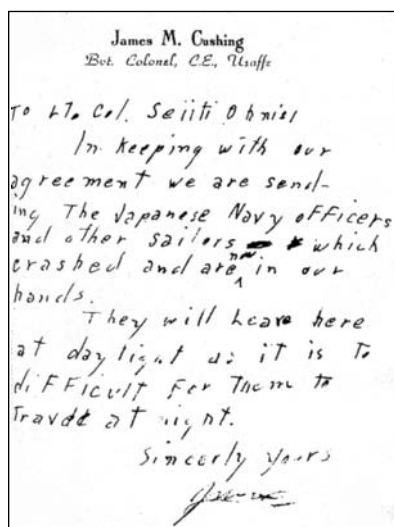 James M. Cushing
Bvt. Colonel, C.E., Usaffe
To Lt. Col. Seiiti Ohnisi
In keeping with our
agreement we are send-
ing The Japanese Navy officers
and other sailors which
crashed and are now in our
hands.
They will Leave here
at daylight as it is To
difficult for Them to
Travel at night.
Sincerly yours